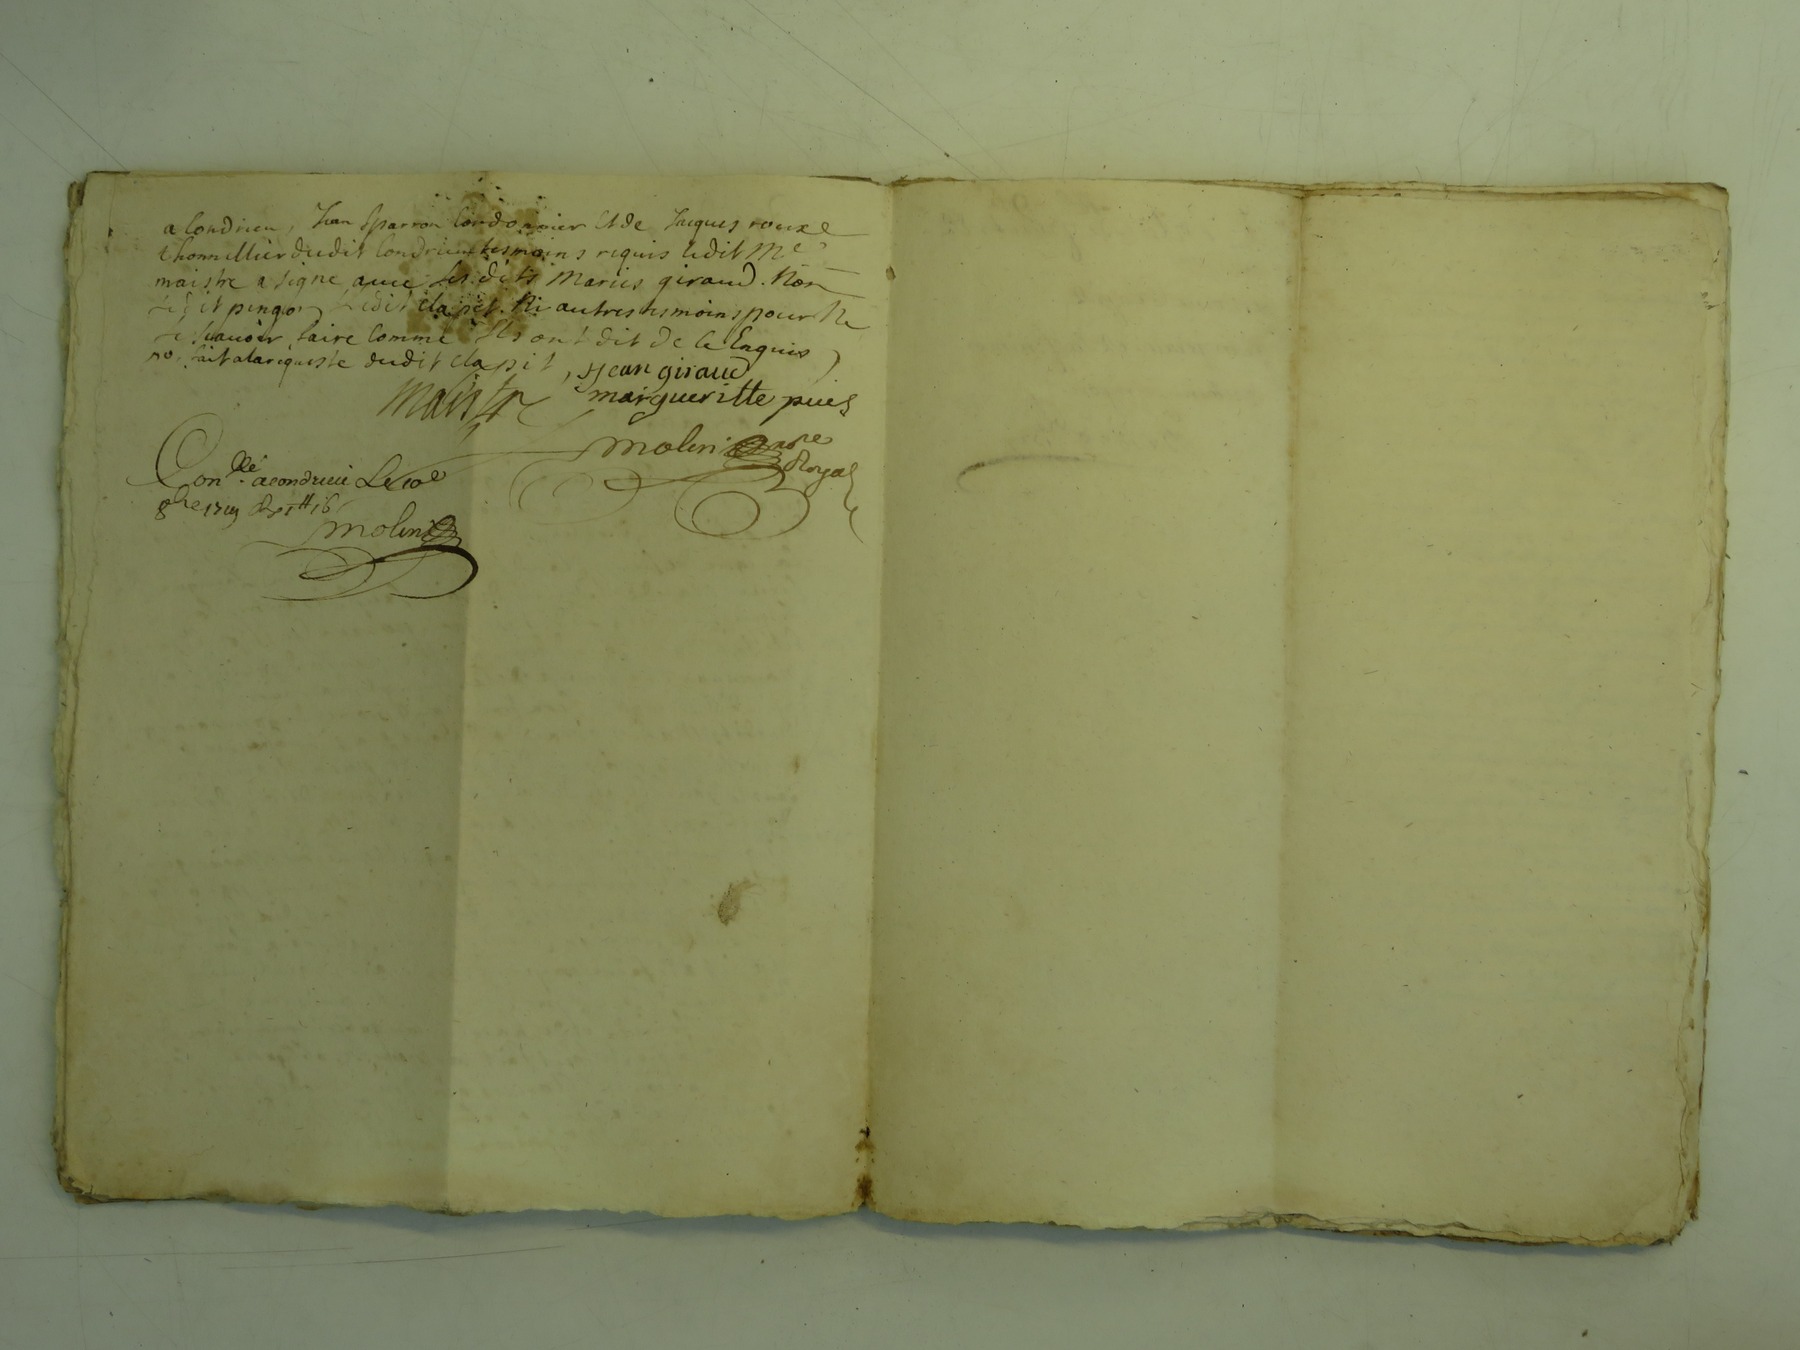 a Condrieu, Jean Sparron Cordonnier Et de Jacques rouxe
thonnillier dudit Condrieu tesmoins requis ledit Me
maistre a signe avec les dits Maries giraud. Non
ledit pingon ledit clapit. Ni autres tesmoins pour Ne
le scavoir faire Comme Ils ont dit de ce Enquis
fait a la requeste dudit clapit, Jean giraud
Maistre margueritte puis
Molin nore
Royal
Conllé a condrieu Le 10e
8bre
Molin